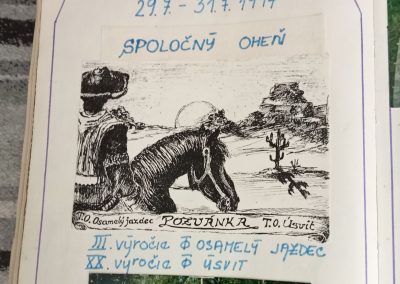 29.7 - 31.7.1999
SPOLOČNÝ OHEŇ
T.O. Osamelý jazdec POZVÁNKA T.O. Úsvit
III. výročia T.O OSAMELÝ JAZDEC
XX. výročia T.O ÚSVIT